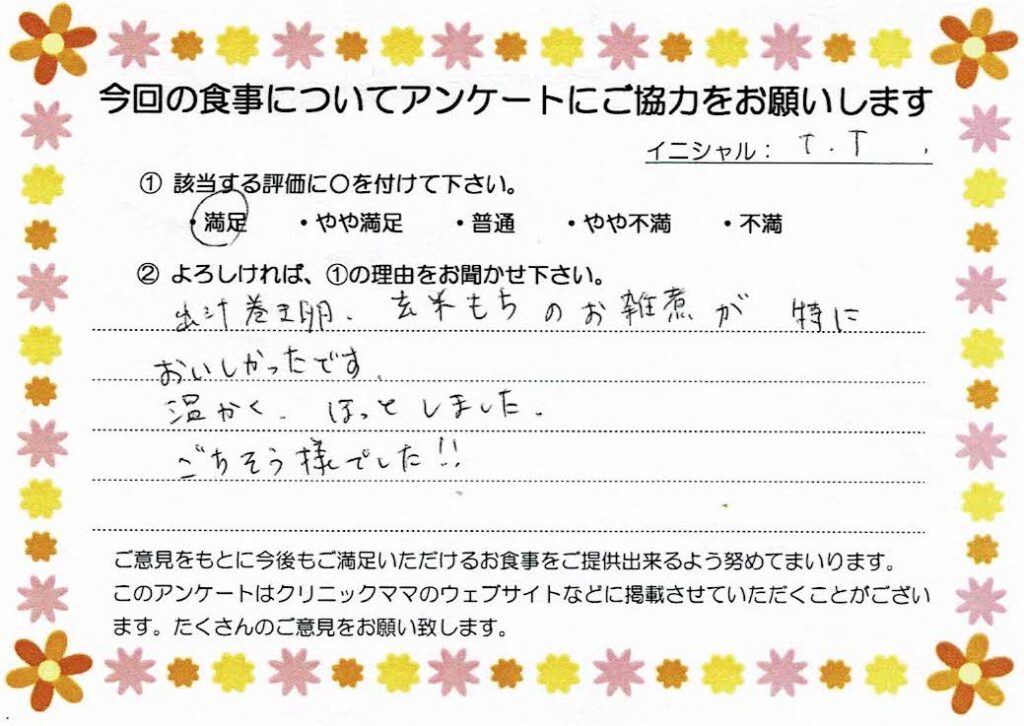 今回の食事についてアンケートにご協力をお願いします
イニシャル： T．T
① 該当する評価に〇を付けて下さい。
・満足 ・やや満足 ・普通 ・やや不満 ・不満
② よろしければ、①の理由をお聞かせ下さい。
出汁巻き卵、玄米もちのお雑煮が 特に
おいしかったです。
温かく、ほっとしました。
ごちそう様でした!!
ご意見をもとに今後もご満足いただけるお食事をご提供出来るよう努めてまいります。
このアンケートはクリニックママのウェブサイトなどに掲載させていただくことがござい
ます。たくさんのご意見をお願い致します。